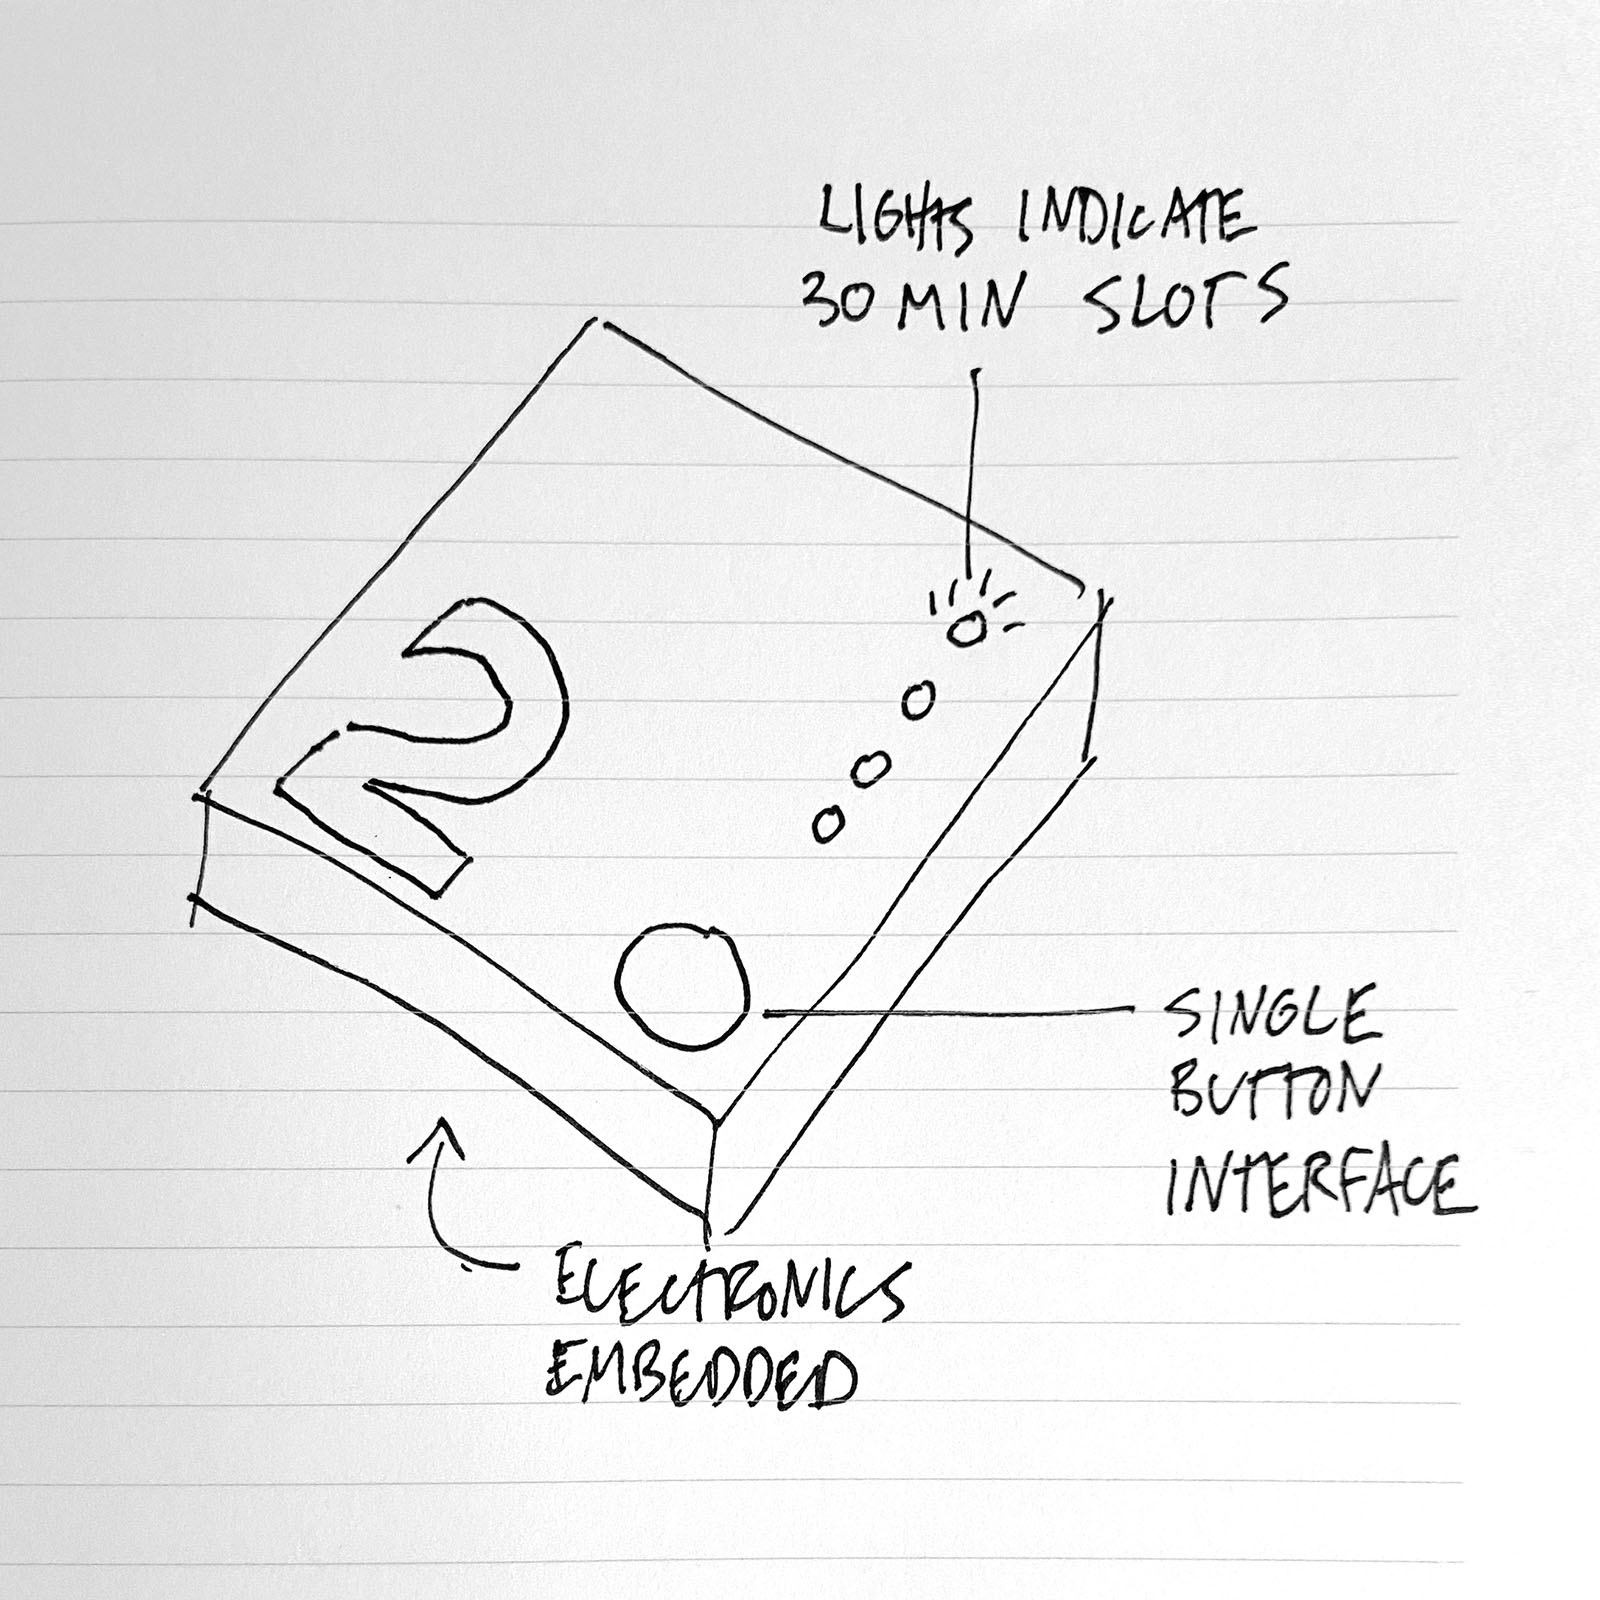 LIGHTS INDICATE
30 MIN SLOTS
2
SINGLE
BUTTON
INTERFACE
ELECTRONICS
EMBEDDED